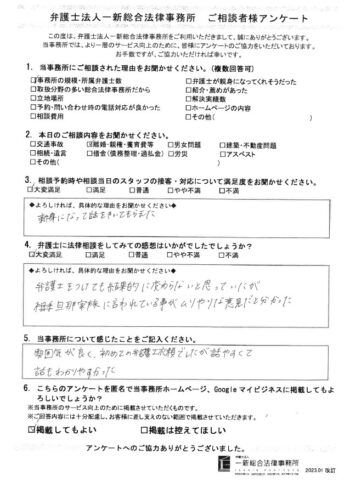 弁護士法人一新総合法律事務所　ご相談者様アンケート
この度は、弁護士法人一新総合法律事務所をご利用いただきまして、誠にありがとうございます。
当事務所では、より一層のサービス向上のために、皆様にアンケートのご協力をいただいております。
お手数ですが、ご協力いただければ幸いです。
1. 当事務所にご相談された理由をお聞かせください。(複数回答可)
☑事務所の規模・所属弁護士数　□弁護士が親身になってくれそうだった
□取扱分野の多い総合法律事務所だから　□紹介・薦めがあった
□立地場所　□解決実績数
□予約・問い合わせ時の電話対応が良かった　□ホームページの内容
□相談費用　□その他(　)
2. 本日のご相談内容をお聞かせください。
□交通事故　☑離婚・親権・養育費等　□男女問題　□建築・不動産問題
□相続・遺言　□借金(債務整理・過払金)　□労災　□アスベスト
□その他(　)
3. 相談予約時や相談当日のスタッフの接客・対応について満足度をお聞かせください。
☑大変満足　□満足　□普通　□やや不満　□不満
◆よろしければ、具体的な理由をお聞かせください◆
親身になって話をきいてもらえた
4. 弁護士に法律相談をしてみての感想はいかがでしたでしょうか?
☑大変満足　□満足　□普通　□やや不満　□不満
◆よろしければ、具体的な理由をお聞かせください◆
弁護士をつけても結果的に変わらないと思っていたが
相手旦那家族に言われている事がムリやりな意見だと分かった
5. 当事務所について感じたことをご記入ください。
雰囲気が良く、初めての弁護士相談でしたが話やすくて
話もわかりやすかった
6. こちらのアンケートを匿名で当事務所ホームページ、Googleマイビジネスに掲載してもよ
ろしいでしょうか?
※当事務所のサービス向上のために掲載させていただくものです。
※ご回答内容には十分配慮し、お客様に差し支えのない範囲で掲載させていただきます。
☑掲載してもよい　□掲載は控えてほしい
アンケートへのご協力ありがとうございました。
弁護士法人
一新総合法律事務所
2023.01 改訂